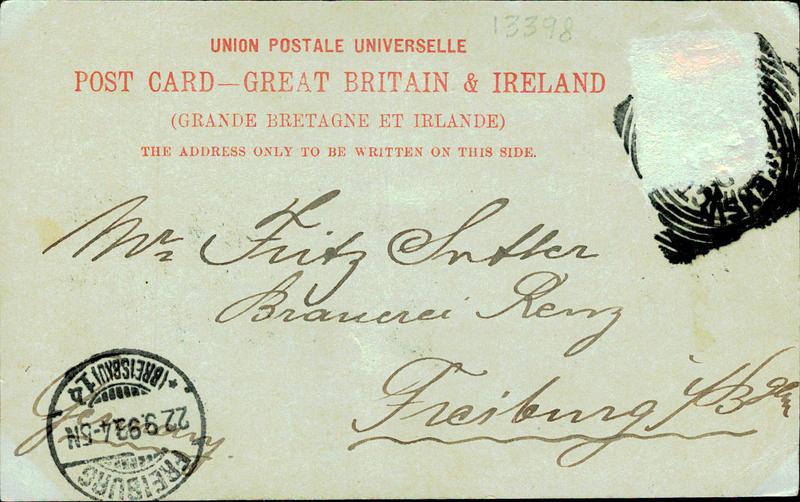 13398
UNION POSTALE UNIVERSELLE
POST CARD—GREAT BRITAIN & IRELAND
(GRANDE BRETAGNE ET IRLANDE)
THE ADDRESS ONLY TO BE WRITTEN ON THIS SIDE.
Mr Fritz Sutter
Brauerei Renz
Freiburg i/Bgau
Germany
FREIBURG
22.9.99.4-5N
* (BREISGAU) 14